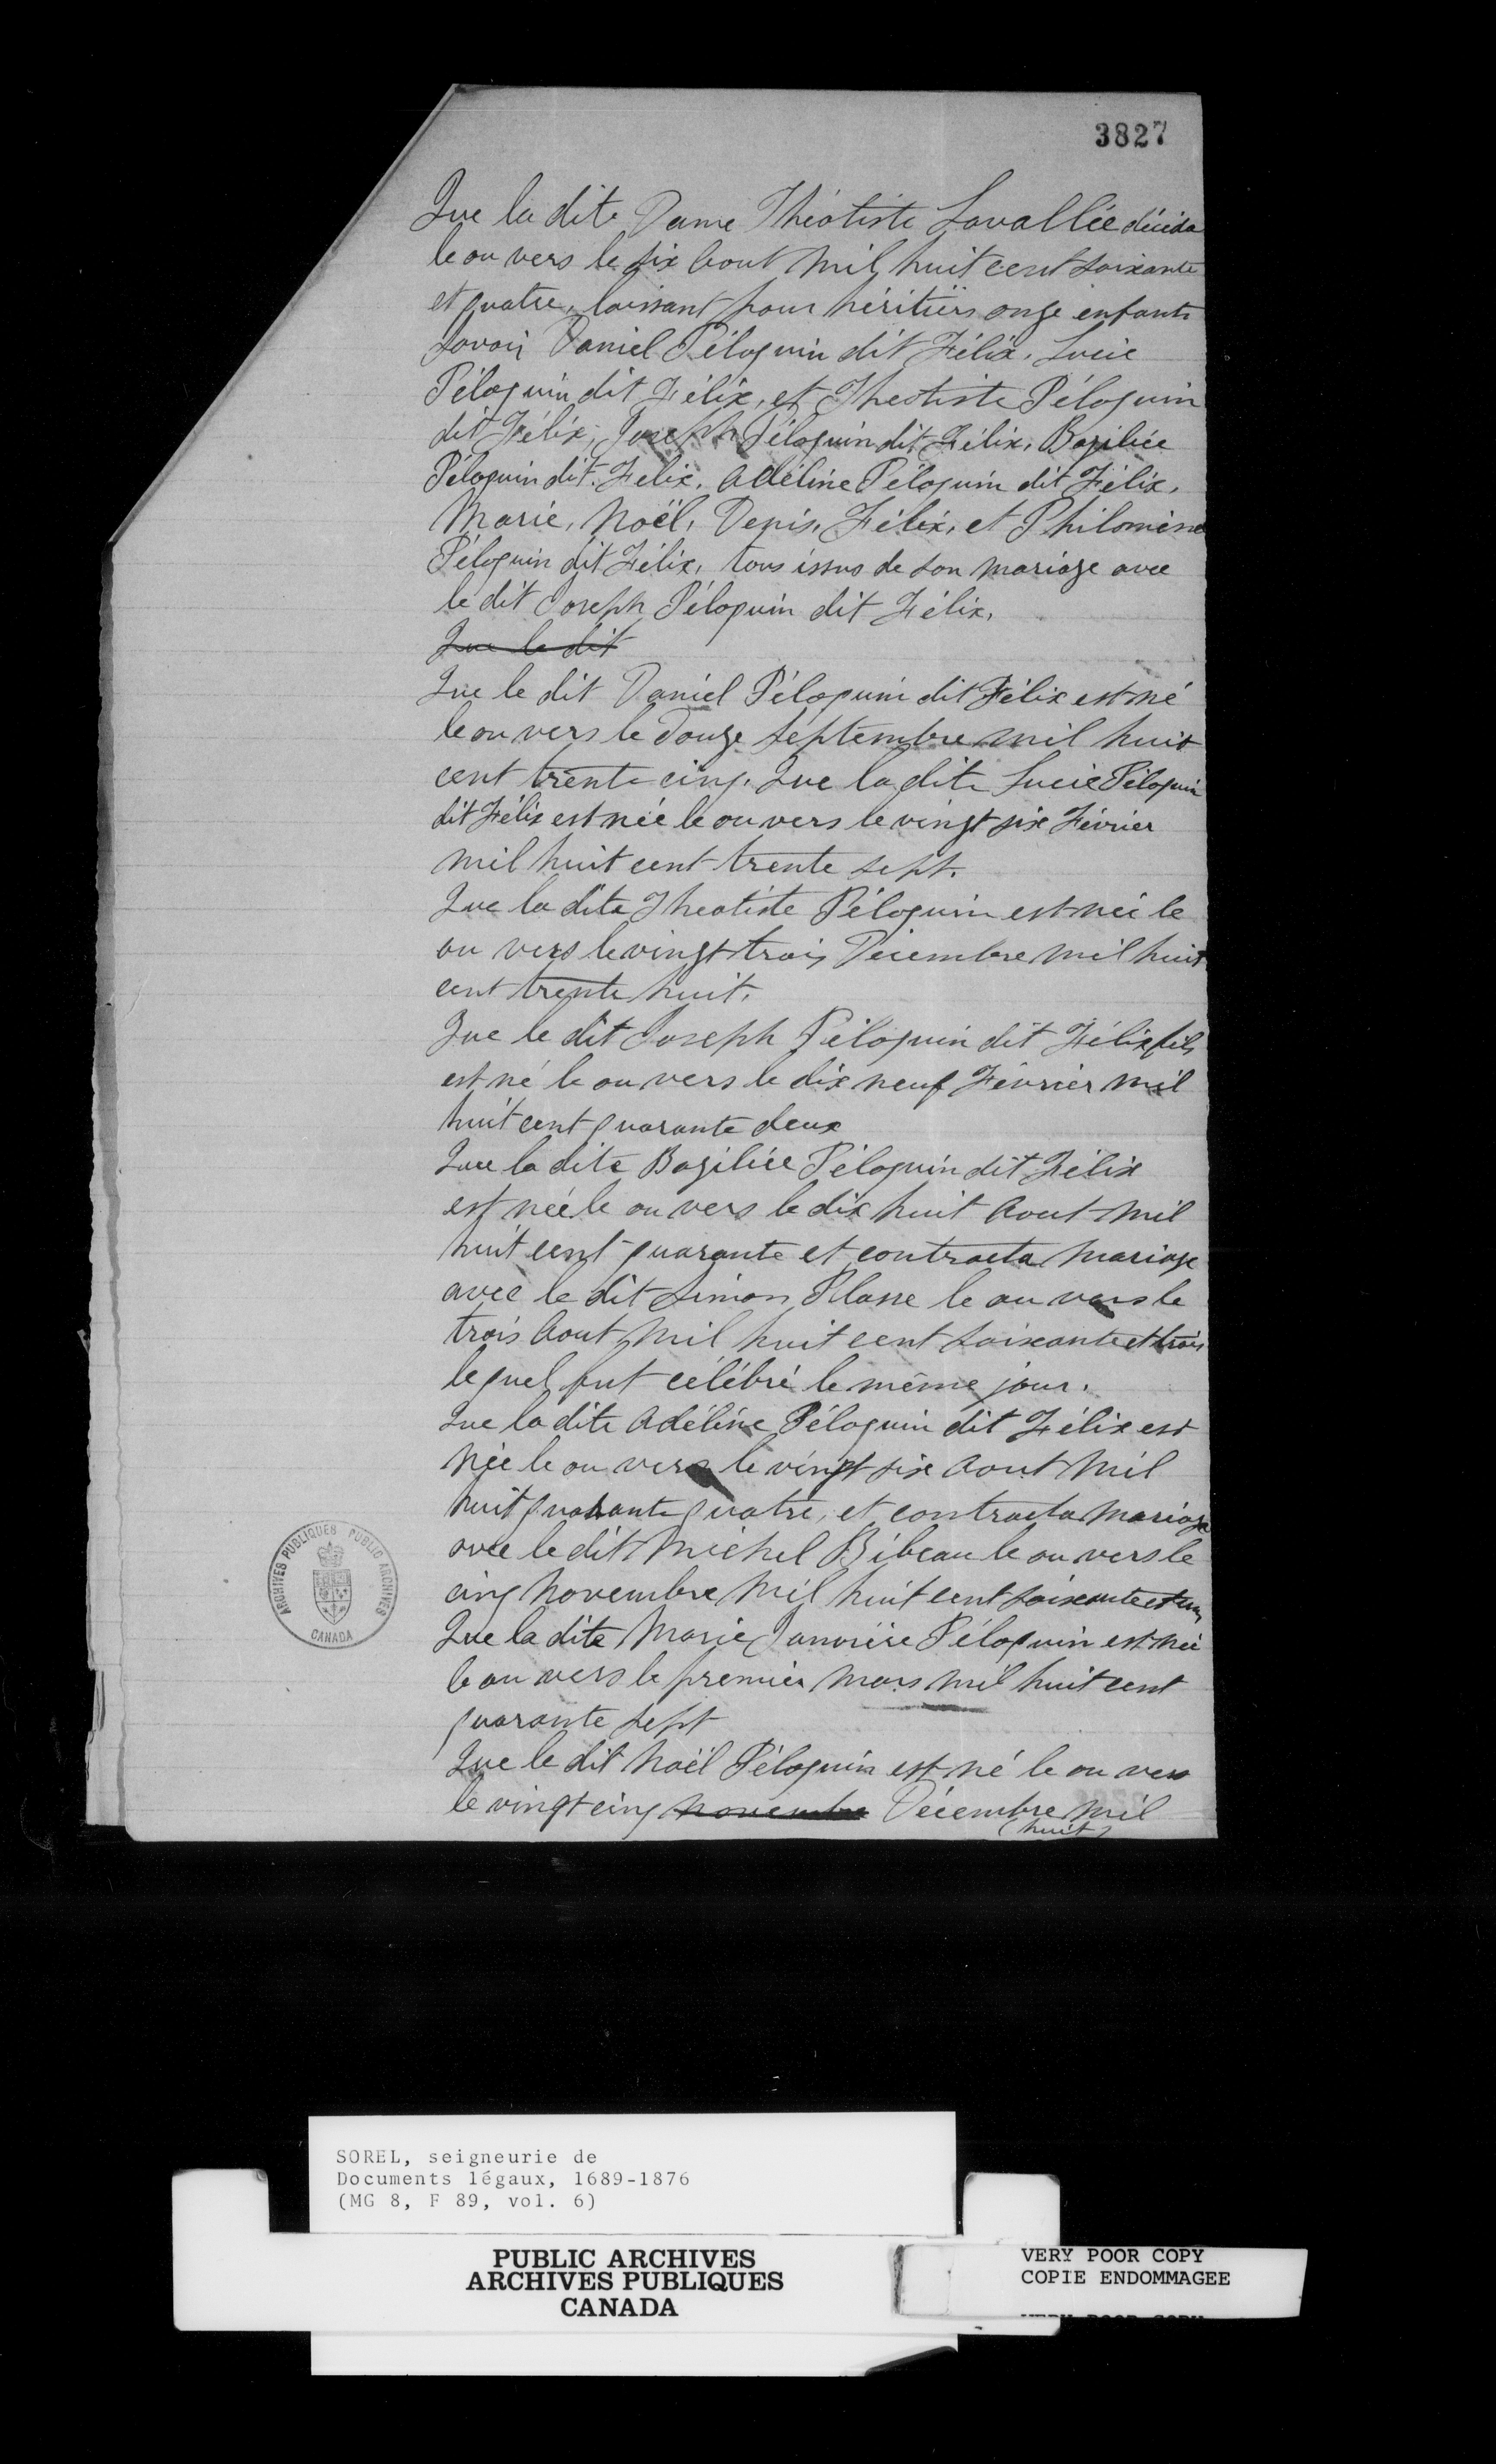 3827
Que la dite Dame Théotiste Lavallée décéda
le ou vers le six Aout mil huit cent soixante
et quatre, laissant pour héritiers onze enfants
savoir Daniel Péloquin dit Félix, Lucie
Péloquin dit Félix, et Theotiste Péloquin
dit Félix, Joseph Péloquin dit Félix, Bazilice
Péloquin dit Felix, Adéline Péloquin dit Félix,
Marie, Noël, Denis, Félix, et Philomène
Péloquin dit Félix, tous issus de son mariage avec
le dit Joseph Péloquin dit Félix,
Que le dit
Que le dit Daniel Péloquin dit Félix est né
le ou vers le Douze Septembre mil huit
cent trente cinq. Que la dite Lucie Péloquin
dit Félix est née le ou vers le vingt six Février
mil huit cent trente sept.
Que la dite Theotiste Péloquin est née le
ou vers le vingt trois Décembre mil huit
cent trente huit.
Que le dit Joseph Péloquin dit Félix fils
est né le ou vers le dix neuf Février mil
huit cent quarante deux
Que la dite Bazilice Péloquin dit Félix
est née le ou vers le dix huit Aout mil
huit cent quarante et contracta mariage
avec le dit Simon Plasse le ou vers le
trois Aout mil huit cent soixante et trois
lequel fut célébré le même jour.
Que la dite Adéline Péloquin dit Félix est
née le ou vers le vingt six Aout mil
huit quarante quatre, et contracta mariage
avec le dit Michel Bibeau le ou vers le
cinq Novembre mil huit cent soixante et un
Que la dite Marie Janvière Péloquin est née
le ou vers le premier Mars mil huit cent
quarante sept
Que le dit Noël Péloquin est né le ou vers
le vingt cinq novembre Décembre mil
(huit)
ARCHIVES PUBLIQUES PUBLIC ARCHIVES
CANADA
SOREL, seigneurie de
Documents légaux, 1689-1876
(MG 8, F 89, vol. 6)
PUBLIC ARCHIVES
ARCHIVES PUBLIQUES
CANADA
VERY POOR COPY
COPIE ENDOMMAGEE
VERY POOR COPY